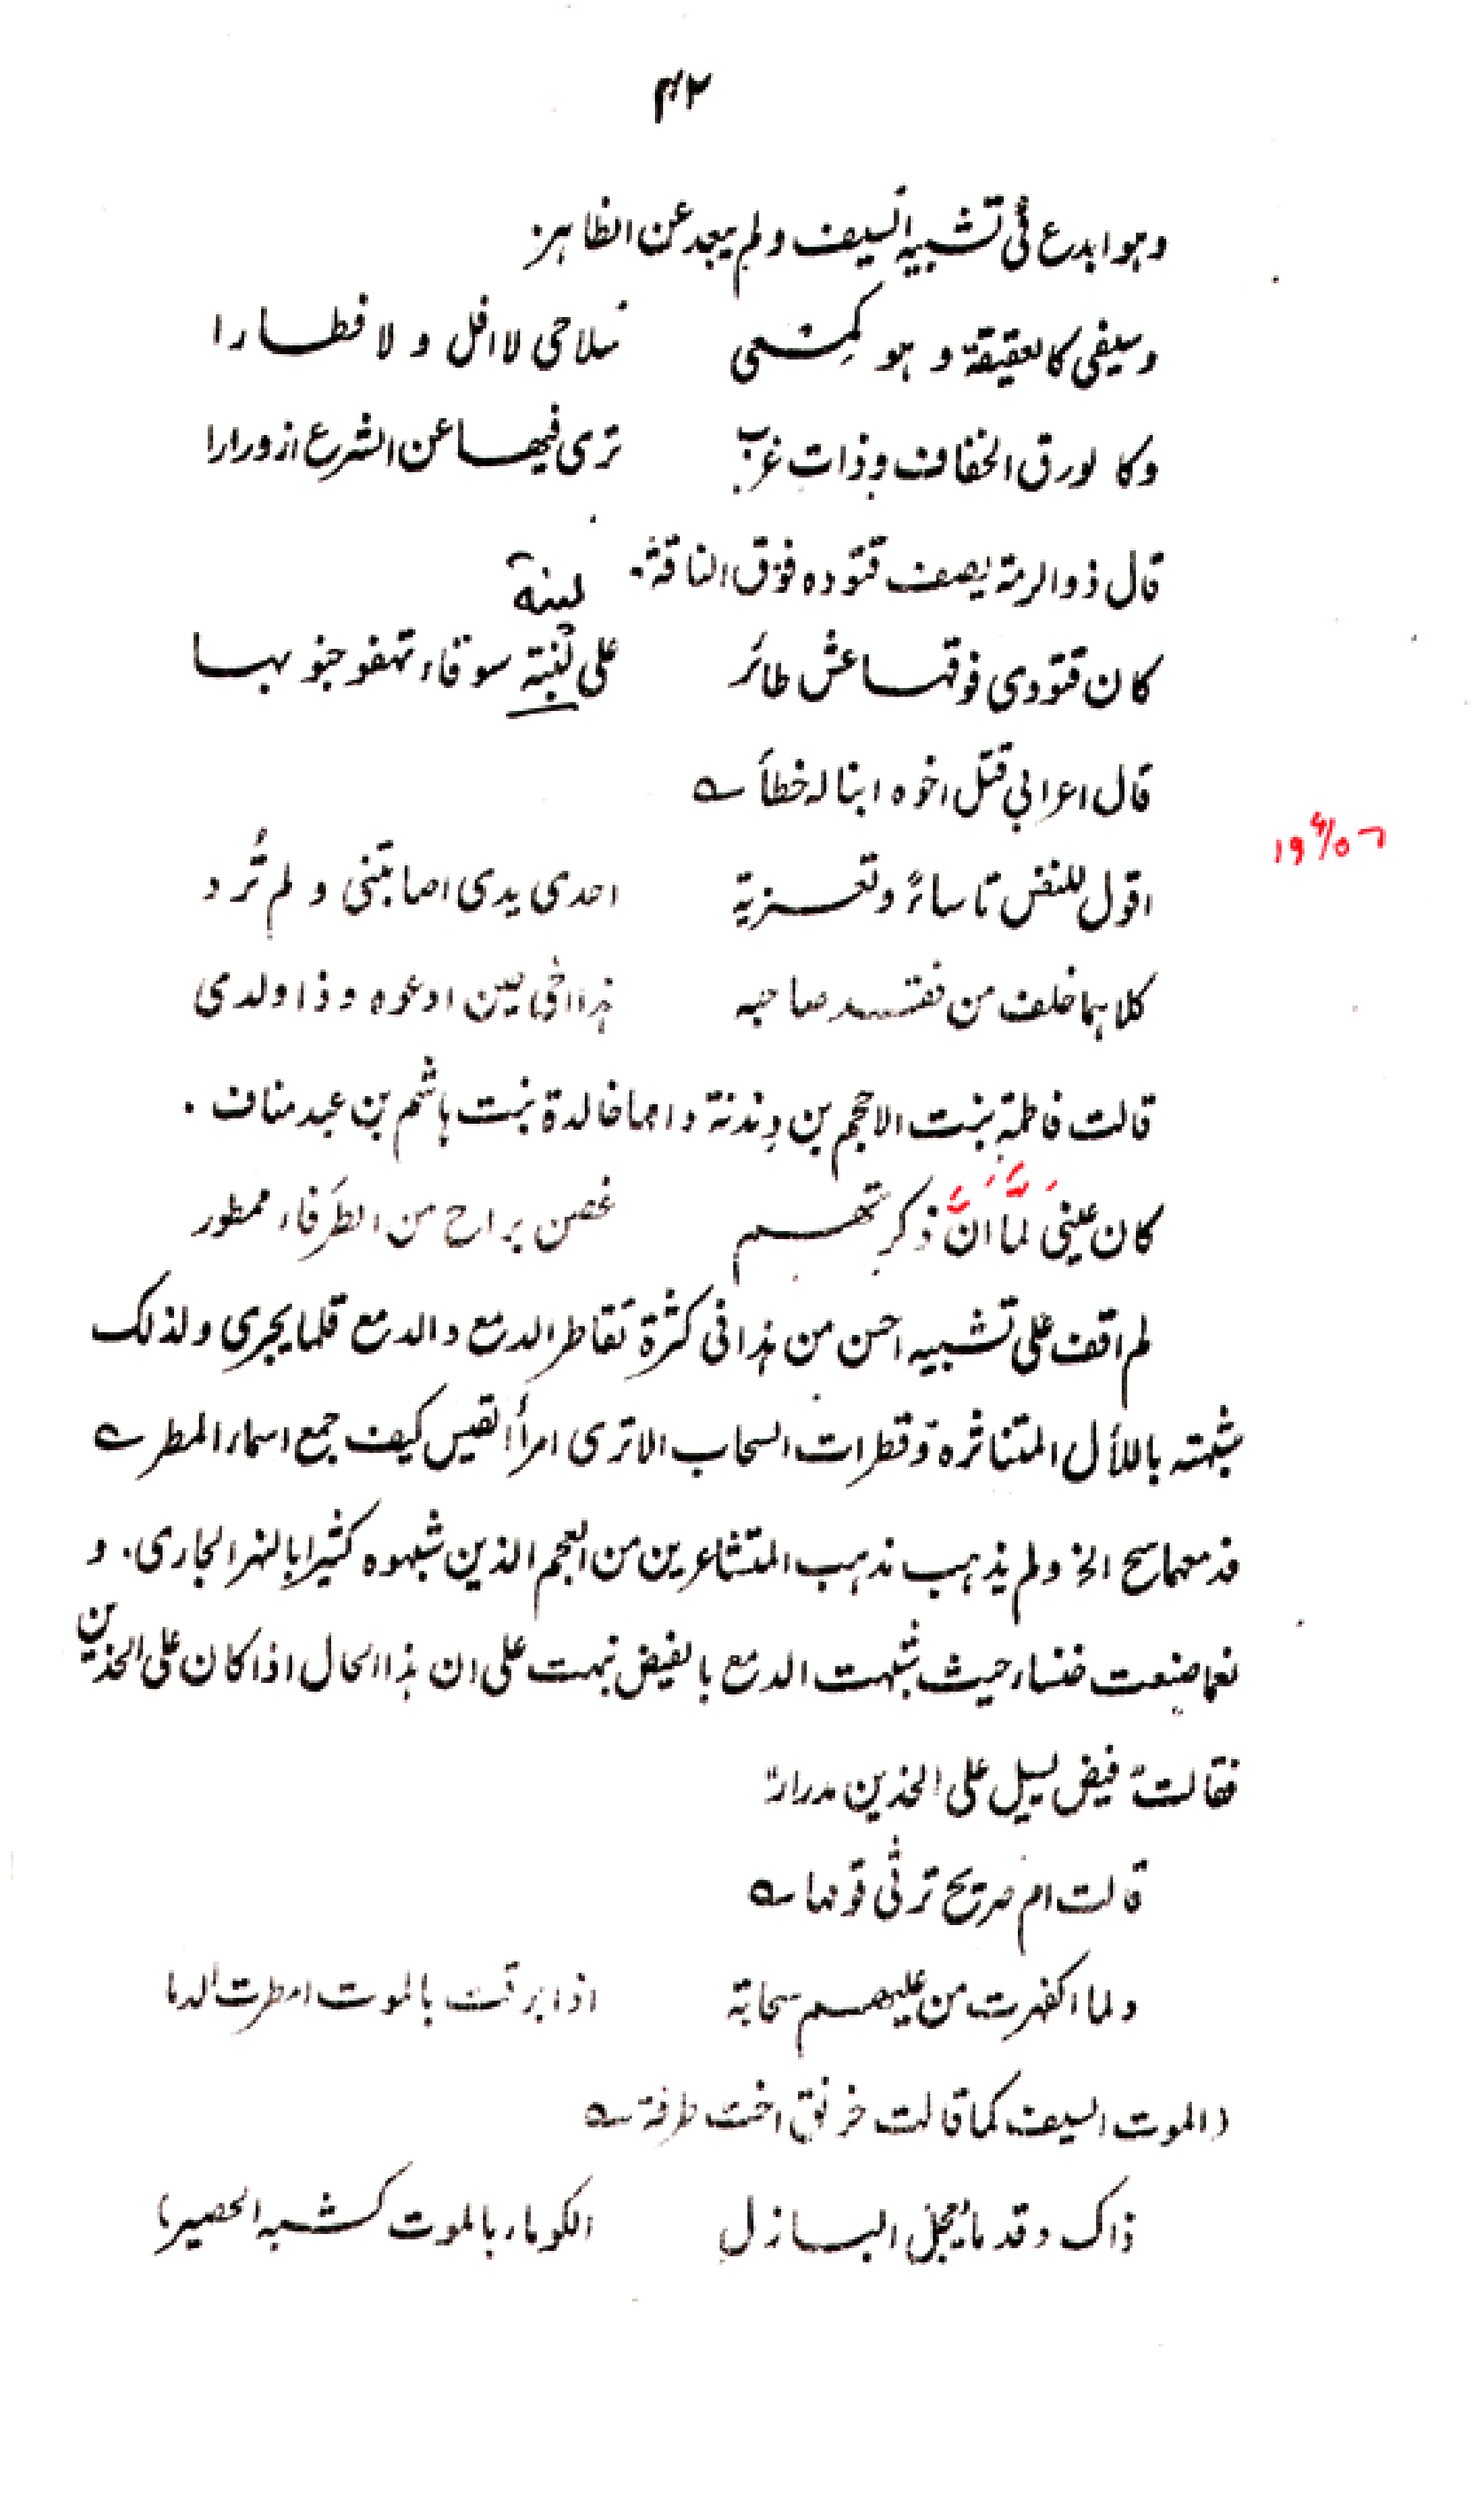 ۴۲
وهو ابدع فی تشبیه السیف ولم یبعد عن الظاهر:
وسیفی کالعقیقة وهو کمعی سلاحی لا افل ولا فطارا
وکالورق الخفاف وذات غرب تری فیها عن الشرع ازورارا
قال ذو الرمة یصف قتوده فوق الناقة.
لینة
کان قتودی فوقها عش طائر علی لنبة سوقاء تهفو جنوبها
قال اعرابی قتل اخوه ابنا له خطأ ؎
۱۹ ۴/۵۶
اقول للنفس تاساءً وتعزیة احدی یدی اصابتنی ولم تُرد
کلاهما خلف من فقد صاحبه هذا اخی حین ادعوه وذا ولدی
قالت فاطمة بنت الاحجم بن دِندنة وامها خالدة بنت هاشم بن عبد مناف.
کان عینیَ لَمَّا اَنَّ ذکرتهم غصن براح من الطَرفاء ممطور
لم اقف علی تشبیه احسن من هذا فی کثرة تقاطر الدمع والدمع قلما یجری ولذلک
شبهته باللأل المتناثره وقطرات السحاب الا تری امرأ القیس کیف جمع اسماء المطر ؎
فدمعهما سح الخ ولم یذهب مذهب المتشاعرین من العجم الذین شبهوه کثیرا بالنهر الجاری. و
نعما صنعت خنساء حیث شبهت الدمع بالفیض نبهت علی ان هذا الحال اذا کان علی الخدین
فقالت "فیض یسیل علی الخدین مدرار"
قالت ام صریح ترثی قومها ؎
ولما اکفهرت من علیهم سحابة اذا برقت بالموت امطرت الدما
(الموت السیف کما قالت خرنق اخت طرفة ؎
ذاک وقدما یعجل البازل الکوماء بالموت کشبه الحصیر)